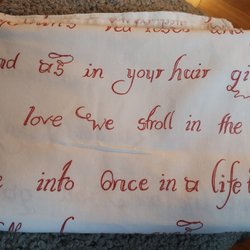 red roses and
nd as in your hair gi
love we stroll in the
e into Once in a life t